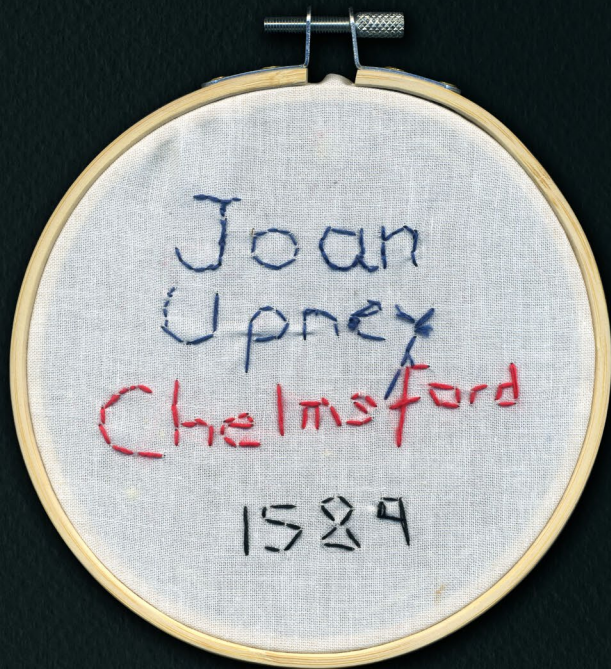 Joan
Upney
Chelmsford
1589